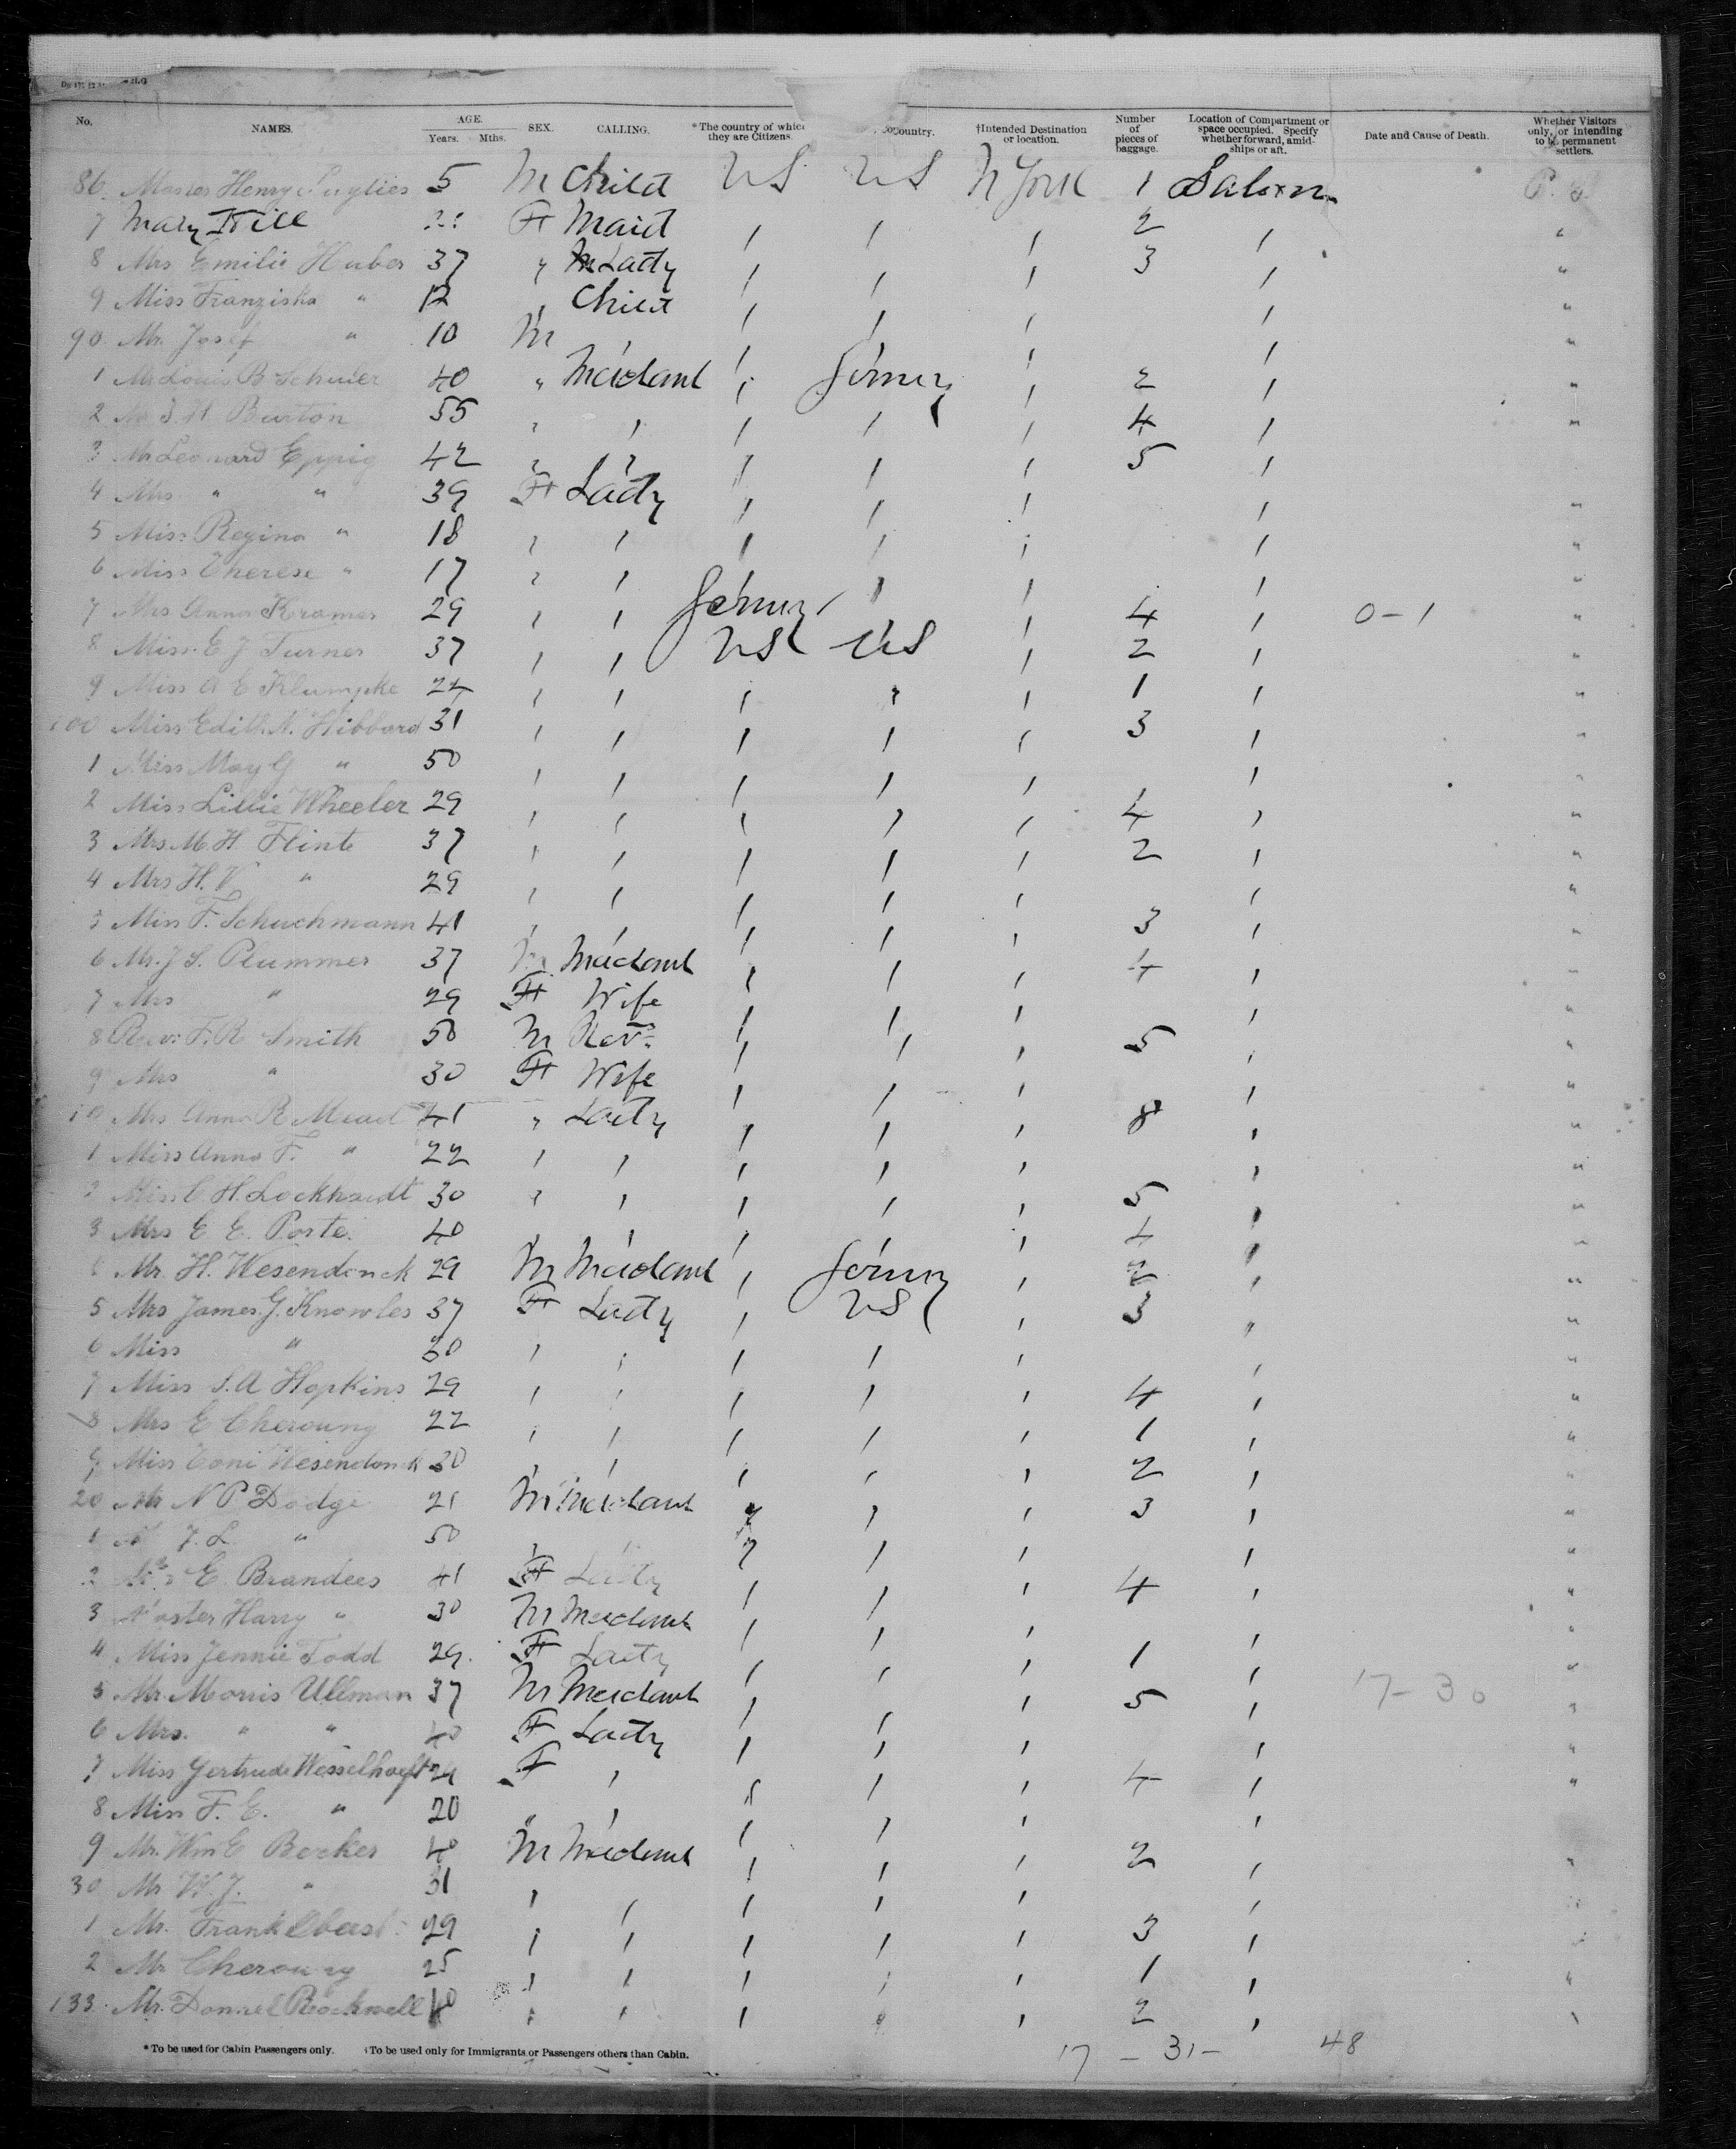 No. NAMES. AGE. Years. Mths. SEX. CALLING. *The country of which they are Citizens. Country. †Intended Destination or location. Number of pieces of baggage. Location of Compartment or space occupied. Specify whether forward, amidships or aft. Date and Cause of Death. Whether Visitors only, or intending to be permanent settlers.
86. Master Henry 5 M Child US US N York 1 Saloon
7 Mary F Maid " " " 2 "
8 Mrs Emilie Huber 37 " Lady " " " 3 " "
9 Miss Franziska " 12 " Child " " " " "
90. Mr. Josef " 10 M " " " " " "
1 Mr Louis B Schuler 40 " Merchant " Germy " 2 " "
2 Burton 55 " " " " " 4 " "
3 Mr Leonard Eppig 42 " " " " " 5 "
4 Mrs " " 39 F Lady " " " " "
5 Miss Regina " 18 " " " " " " "
6 Miss Therese " 17 " " " " " " "
7 Mrs Anna Kramer 29 " " Germy " " 4 " 0-1 "
8 Miss. E J Turner 37 " " US US " 2 " "
9 Miss A E Klumpke 24 " " " " " 1 " "
100 Miss Edith N. Hibbard 31 " " " " " 3 " "
1 Miss May G " 50 " " " " " " "
2 Miss Lillie Wheeler 29 " " " " " 4 " "
3 Mrs M. H Flinte 37 " " " " " 2 " "
4 Mrs H. V. " 29 " " " " " " "
5 Miss F. Schuchmann 41 " " " " " 3 " "
6 Mr. J S. Plummer 37 M Merchant " " " 4 " "
7 Mrs " 29 F Wife " " " " "
8 Rev: F. R Smith 50 M Rev. " " " 5 " "
9 Mrs " 30 F Wife " " " " "
10 Mrs Anna R Mead 41 " Lady " " " 8 " "
1 Miss Anna F. " 22 " " " " " " "
2 Miss C H. Lockhardt 30 " " " " " 5 " "
3 Mrs E E. Porte 40 " " " " " 4 " "
Mr. H. Wesendonck 29 M Merchant " Germy " 2 " "
5 Mrs James G. Knowles 37 F Lady " US " 3 " "
6 Miss " 30 " " " " " " "
7 Miss S. A Hopkins 29 " " " " " 4 " "
8 Mrs E Cherouny 22 " " " " " 1 " "
9 Miss Toni Wesendonck 30 " " " " " 2 " "
20 Mr N P Dodge 21 M Merchant " " " 3 " "
1 J. L. " 50 " " " " " " "
2 E. Brandees 41 F Lady " " " 4 " "
3 Master Harry " 30 M Merchant " " " " "
4 Miss Jennie Todd 29. F Lady " " " 1 " "
5 Mr. Morris Ullman 37 M Merchant " " " 5 " 17-30 "
6 Mrs. " " 40 F Lady " " " " "
7 Miss Gertrude Wesselhoeft 29 F " " " " 4 " "
8 Miss F. E. " 20 " " " " " " "
9 Mr. Wm E Becker 40 M Merchant " " " 2 " "
30 Mr W. J. " 31 " " " " " " "
1 Mr. Frank 29 " " " " " 3 " "
2 Mr Cherouny 25 " " " " " 1 " "
133. Mr. Donnel Rockwell 40 " " " " " 2 " "
*To be used for Cabin Passengers only. †To be used only for Immigrants or Passengers others than Cabin.
17 - 31 - 48